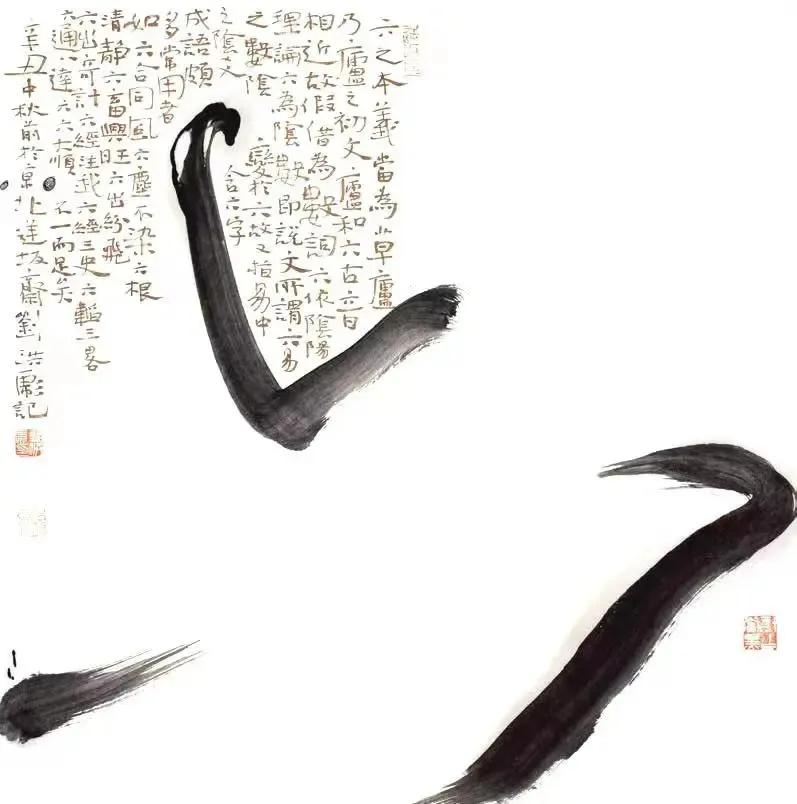 六
六之本義當為草廬
乃廬之初文廬和六古音
相近故假借為數詞六依陰陽
理論六為陰數即說文所謂六易
之數陰變於六故又指易中
之陰爻含六字
成語頗
多常用者
如六合同風六塵不染六根
清靜六畜興旺六出紛飛
六出奇計六經注我六經三史六韜三畧
六通六達六六大順不一而足矣
辛丑中秋前於京北坂齋劉洪彪記